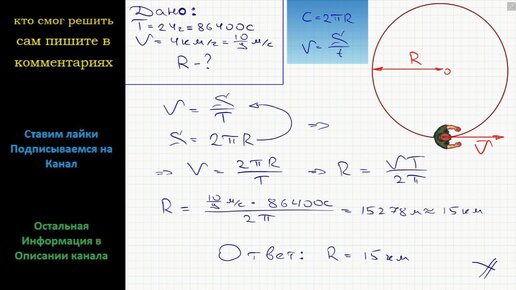 кто смог решить
сам пишите в
комментариях
Ставим лайки
Подписываемся на
Канал
Остальная
Информация в
Описании канала
Дано:
T = 24ч = 86400с
V = 4км/ч = 10/9 м/с
R - ?
C = 2πR
V = S/t
V = S/T
S = 2πR
⇒
⇒ V = 2πR/T ⇒ R = VT/2π
R = (10/9 м/с · 86400с)/2π = 15278м ≈ 15км
Ответ: R = 15км
R
V